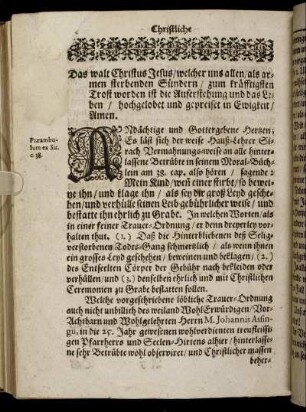 Christliche
Das walt Christus Jesus/welcher uns allen/als ar-
men sterbenden Sündern / zum kräfftigsten
Trost worden ist die Aufferstehung und das Le-
ben / hochgelobet und gepreiset in Ewigkeit /
Amen.
Parambu-
lum ex Sir.
c. 38.
ANdächtige und Gottergebene Hertzen;
Es läst sich der weise Hauß-Lehrer Si-
rach Vermahnungs-weise an alle hinter-
lassene Betrübte in seinem Moral-Büch-
lein am 38. cap. also hören / sagende:
Mein Kind/ wenn einer stirbt/ so bewei-
ne ihn/ und klage ihn / als sey dir groß Leyd gesche-
hen/ und verhülle seinen Leib gebührlicher weise/ und
bestatte ihn ehrlich zu Grabe. In welchen Worten/als
in einer feiner Trauer-Ordnung / er denn dreyerley vor-
halten thut. (1.) Daß die Hinterblichenen des Selig-
verstorbenen Todes-Gang schmertzlich / als wenn ihnen
ein grosses Leyd geschehen/ beweinen und beklagen / (2.)
des Entseelten Cörper der Gebühr nach bekleiden oder
verhüllen/ und (3.) denselben ehrlich und mit Christlichen
Ceremonien zu Grabe bestatten sollen.
Welche vorgeschriebene löbliche Trauer-Ordnung
auch nicht unbillich des weiland WohlEhrwürdigen / Vor-
Achtbarn und Wohlgelehrten Herrn M. Johannis
in die 25. Jahr gewesenen wohlverdienten treufleissi-
gen Pfarrherrs und Seelen-Hirtens allhier / hinterlasse-
ne sehr Betrübte wohl observiret / und Christlicher massen
beher-